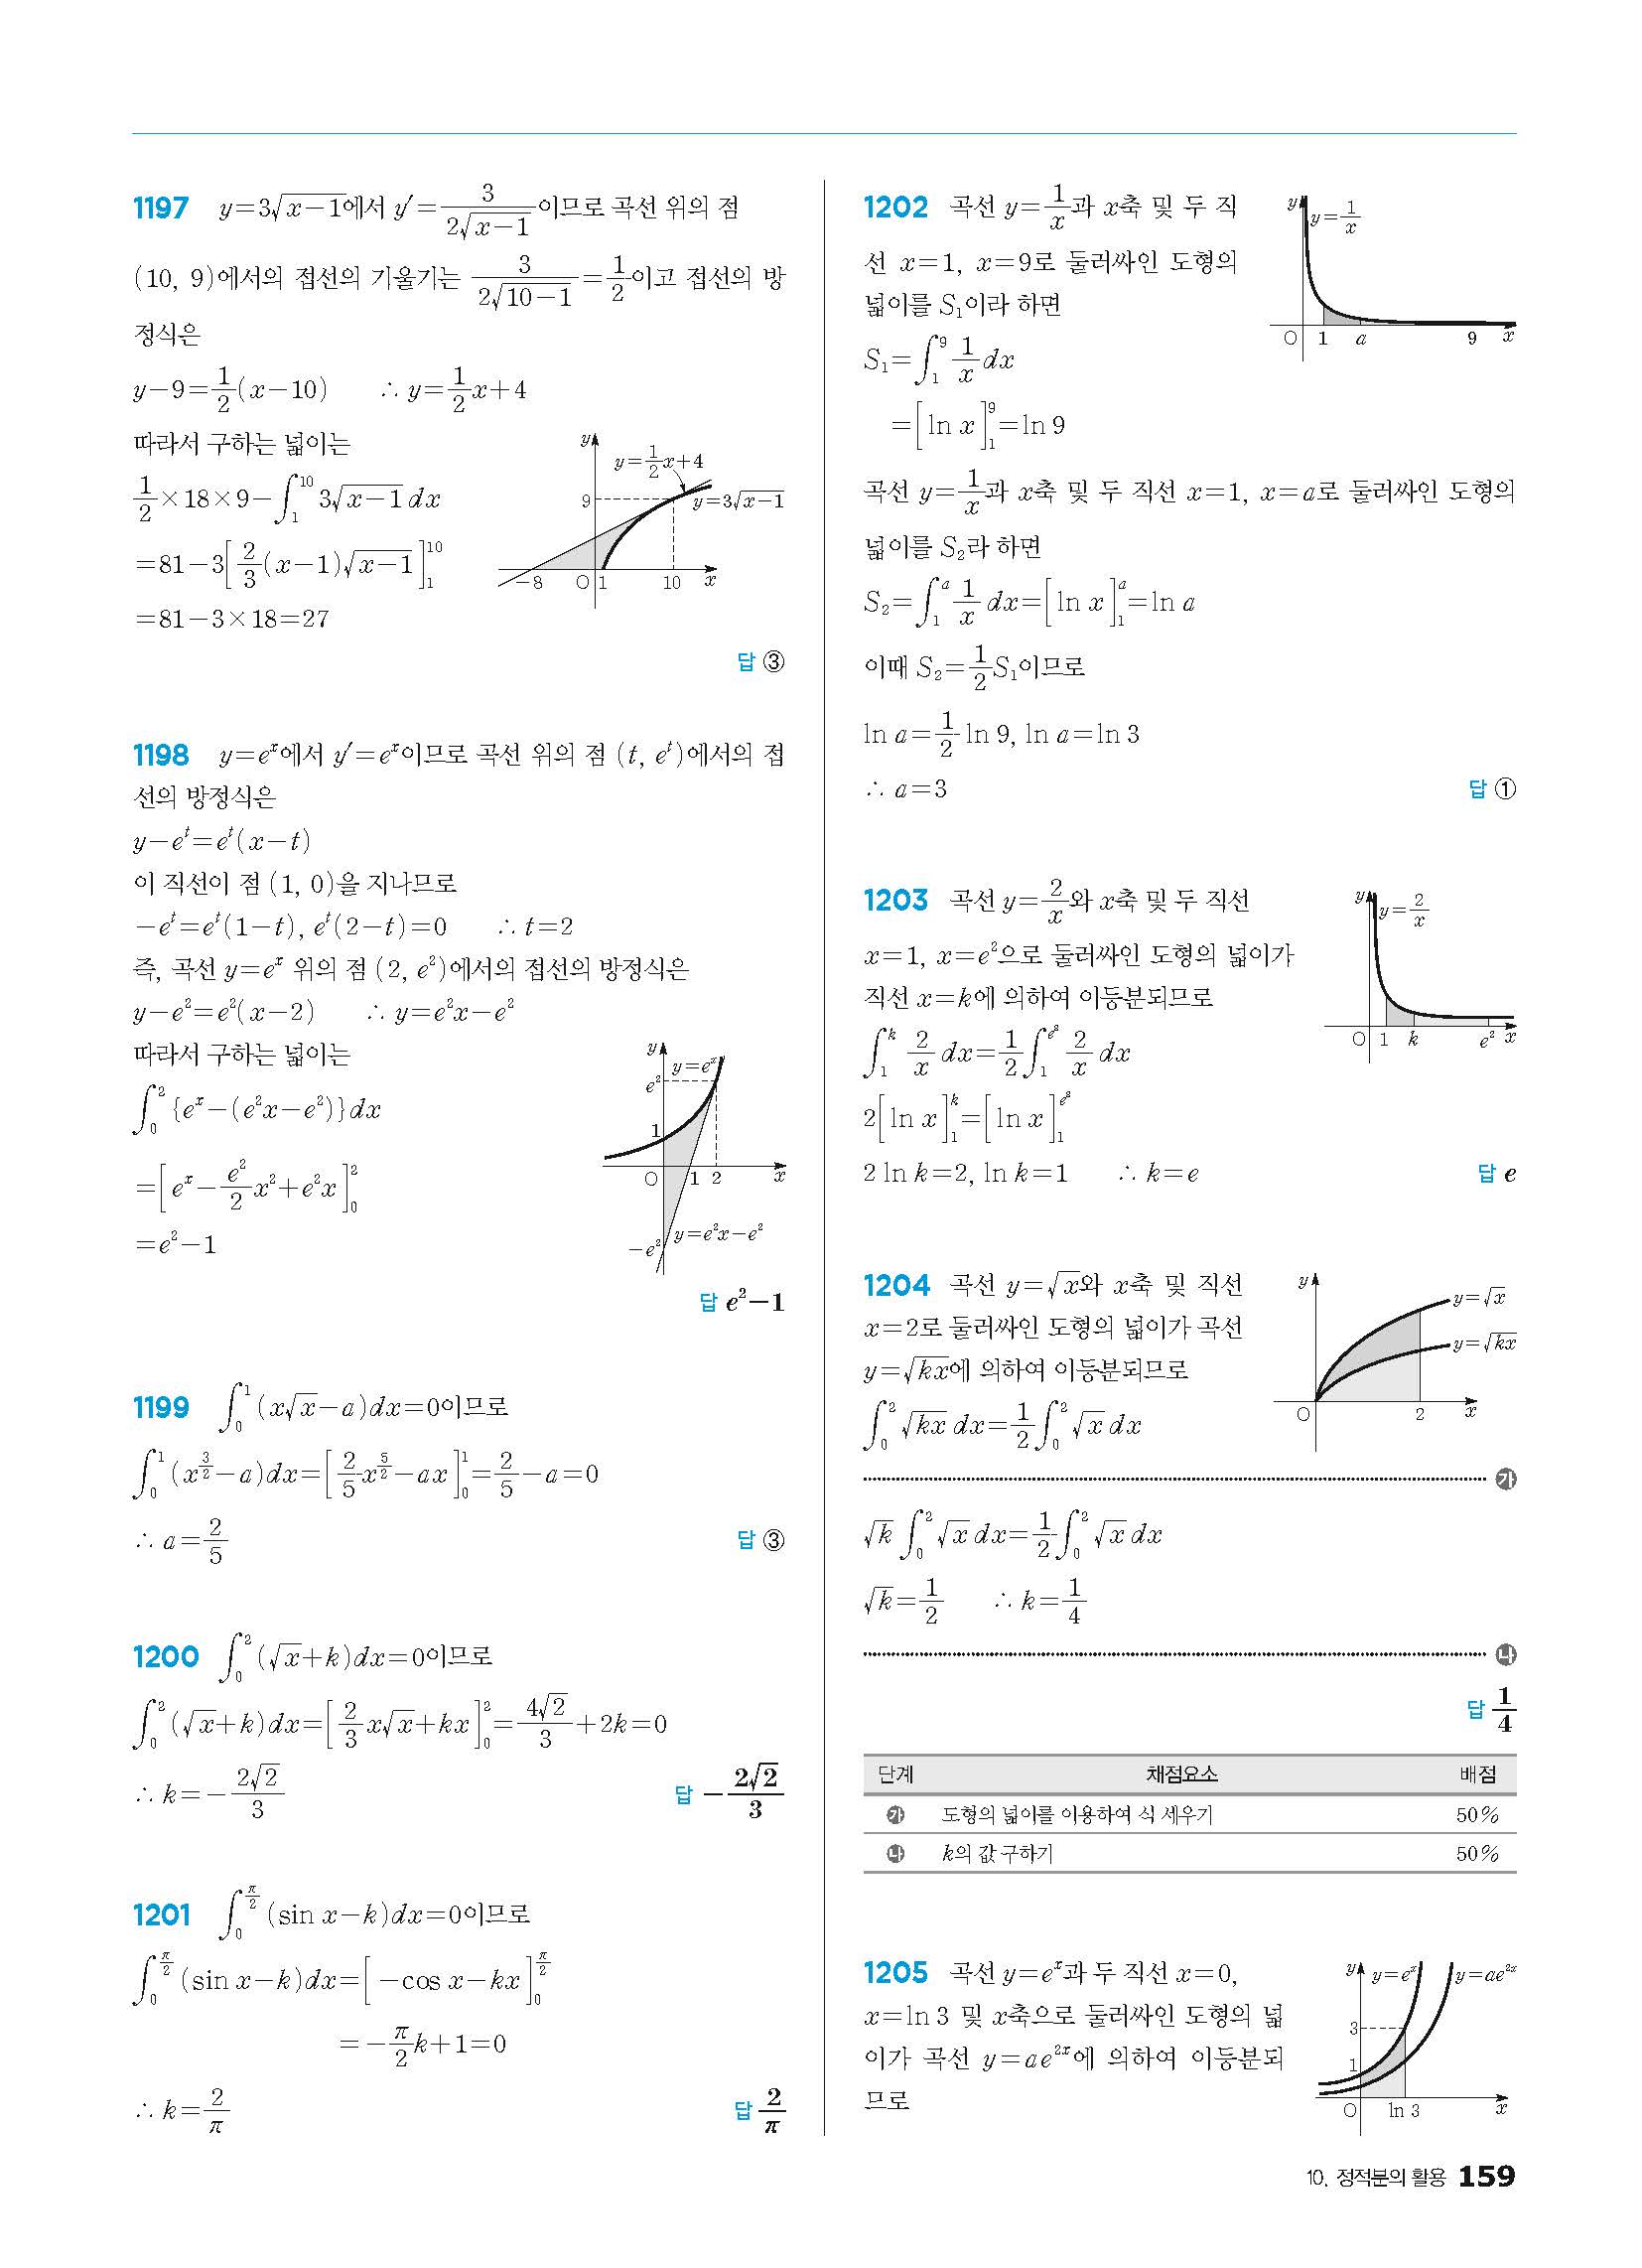 1197 y=3√(x-1)에서 y′=3/(2√(x-1))이므로 곡선 위의 점
(10, 9)에서의 접선의 기울기는 3/(2√(10-1))=1/2이고 접선의 방
정식은
y-9=1/2(x-10) ∴ y=1/2x+4
따라서 구하는 넓이는
1/2×18×9-∫₁¹⁰ 3√(x-1) dx
=81-3[2/3(x-1)√(x-1)]₁¹⁰
=81-3×18=27
y
y=1/2x+4
9
y=3√(x-1)
-8 O 1 10 x
답 ③
1198 y=eˣ에서 y′=eˣ이므로 곡선 위의 점 (t, eᵗ)에서의 접
선의 방정식은
y-eᵗ=eᵗ(x-t)
이 직선이 점 (1, 0)을 지나므로
-eᵗ=eᵗ(1-t), eᵗ(2-t)=0 ∴ t=2
즉, 곡선 y=eˣ 위의 점 (2, e²)에서의 접선의 방정식은
y-e²=e²(x-2) ∴ y=e²x-e²
따라서 구하는 넓이는
∫₀² {eˣ-(e²x-e²)}dx
=[eˣ-e²/2 x²+e²x]₀²
=e²-1
y
y=eˣ
e²
1
O 1 2 x
y=e²x-e²
-e²
답 e²-1
1199 ∫₀¹ (x√x-a)dx=0이므로
∫₀¹ (x^(3/2)-a)dx=[2/5 x^(5/2)-ax]₀¹=2/5-a=0
∴ a=2/5 답 ③
1200 ∫₀² (√x+k)dx=0이므로
∫₀² (√x+k)dx=[2/3 x√x+kx]₀²=4√2/3+2k=0
∴ k=-2√2/3 답 -2√2/3
1201 ∫₀^(π/2) (sin x-k)dx=0이므로
∫₀^(π/2) (sin x-k)dx=[-cos x-kx]₀^(π/2)
=-π/2 k+1=0
∴ k=2/π 답 2/π
1202 곡선 y=1/x과 x축 및 두 직
선 x=1, x=9로 둘러싸인 도형의
넓이를 S₁이라 하면
S₁=∫₁⁹ 1/x dx
=[ln x]₁⁹=ln 9
y
y=1/x
O 1 a 9 x
곡선 y=1/x과 x축 및 두 직선 x=1, x=a로 둘러싸인 도형의
넓이를 S₂라 하면
S₂=∫₁ᵃ 1/x dx=[ln x]₁ᵃ=ln a
이때 S₂=1/2 S₁이므로
ln a=1/2 ln 9, ln a=ln 3
∴ a=3 답 ①
1203 곡선 y=2/x와 x축 및 두 직선
x=1, x=e²으로 둘러싸인 도형의 넓이가
직선 x=k에 의하여 이등분되므로
∫₁ᵏ 2/x dx=1/2∫₁^(e²) 2/x dx
2[ln x]₁ᵏ=[ln x]₁^(e²)
2 ln k=2, ln k=1 ∴ k=e 답 e
y
y=2/x
O 1 k e² x
1204 곡선 y=√x와 x축 및 직선
x=2로 둘러싸인 도형의 넓이가 곡선
y=√(kx)에 의하여 이등분되므로
∫₀² √(kx) dx=1/2∫₀² √x dx
y
y=√x
y=√(kx)
O 2 x
㉮
√k ∫₀² √x dx=1/2∫₀² √x dx
√k=1/2 ∴ k=1/4
㉯
답 1/4
단계 채점요소 배점
㉮ 도형의 넓이를 이용하여 식 세우기 50%
㉯ k의 값 구하기 50%
1205 곡선 y=eˣ과 두 직선 x=0,
x=ln 3 및 x축으로 둘러싸인 도형의 넓
이가 곡선 y=ae²ˣ에 의하여 이등분되
므로
y y=eˣ y=ae²ˣ
3
1
O ln 3 x
10. 정적분의 활용 159